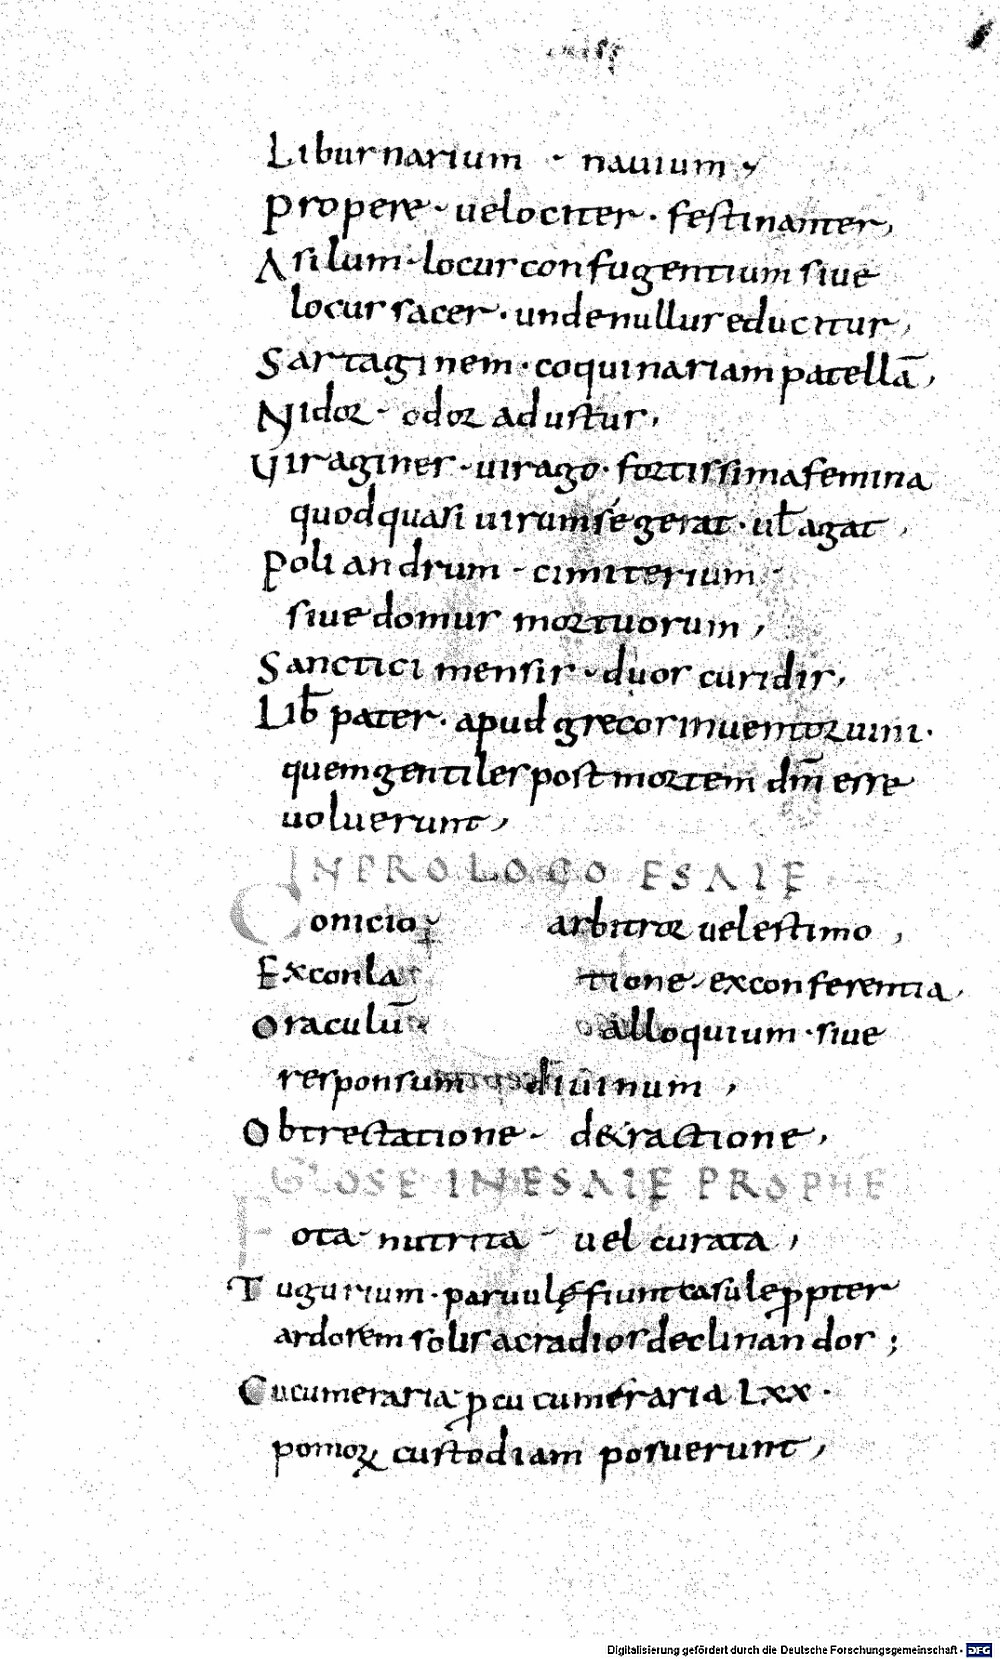 Liburnarium · nauium ·
Propere · uelociter · festinanter,
Asilum · locus confugentium siue
locus sacer · unde nullus educitur,
Sartaginem · coquinariam patellā,
Nidor · odor adustus,
Uiragines · uirago · fortissima femina
quod quasi uirum se gerat · uƚ agat,
Poliandrum · cimiterium ·
siue domus mortuorum,
Sanctici mensis · duos curidis,
Liƀ pater · apud grecos inuentor uini ·
quem gentiles post mortem dm̄ esse
uoluerunt,
IN PROLOGO ESAIE
Conicior arbitror uel estimo,
Exconla tione · exconferentia,
Oraculū alloquium · siue
responsum diuinum,
Obtrectatione · detractione,
GLOSE IN ESAIE PROPHE
Fota · nutrita · uel curata,
Tugurium · paruulę fiunt casule ꝓpter
ardorem solis ac radios declinandos;
Cucumeraria · ꝓ cucumeraria Lxx ·
pomoꝝ custodiam posuerunt,
Digitalisierung gefördert durch die Deutsche Forschungsgemeinschaft - DFG